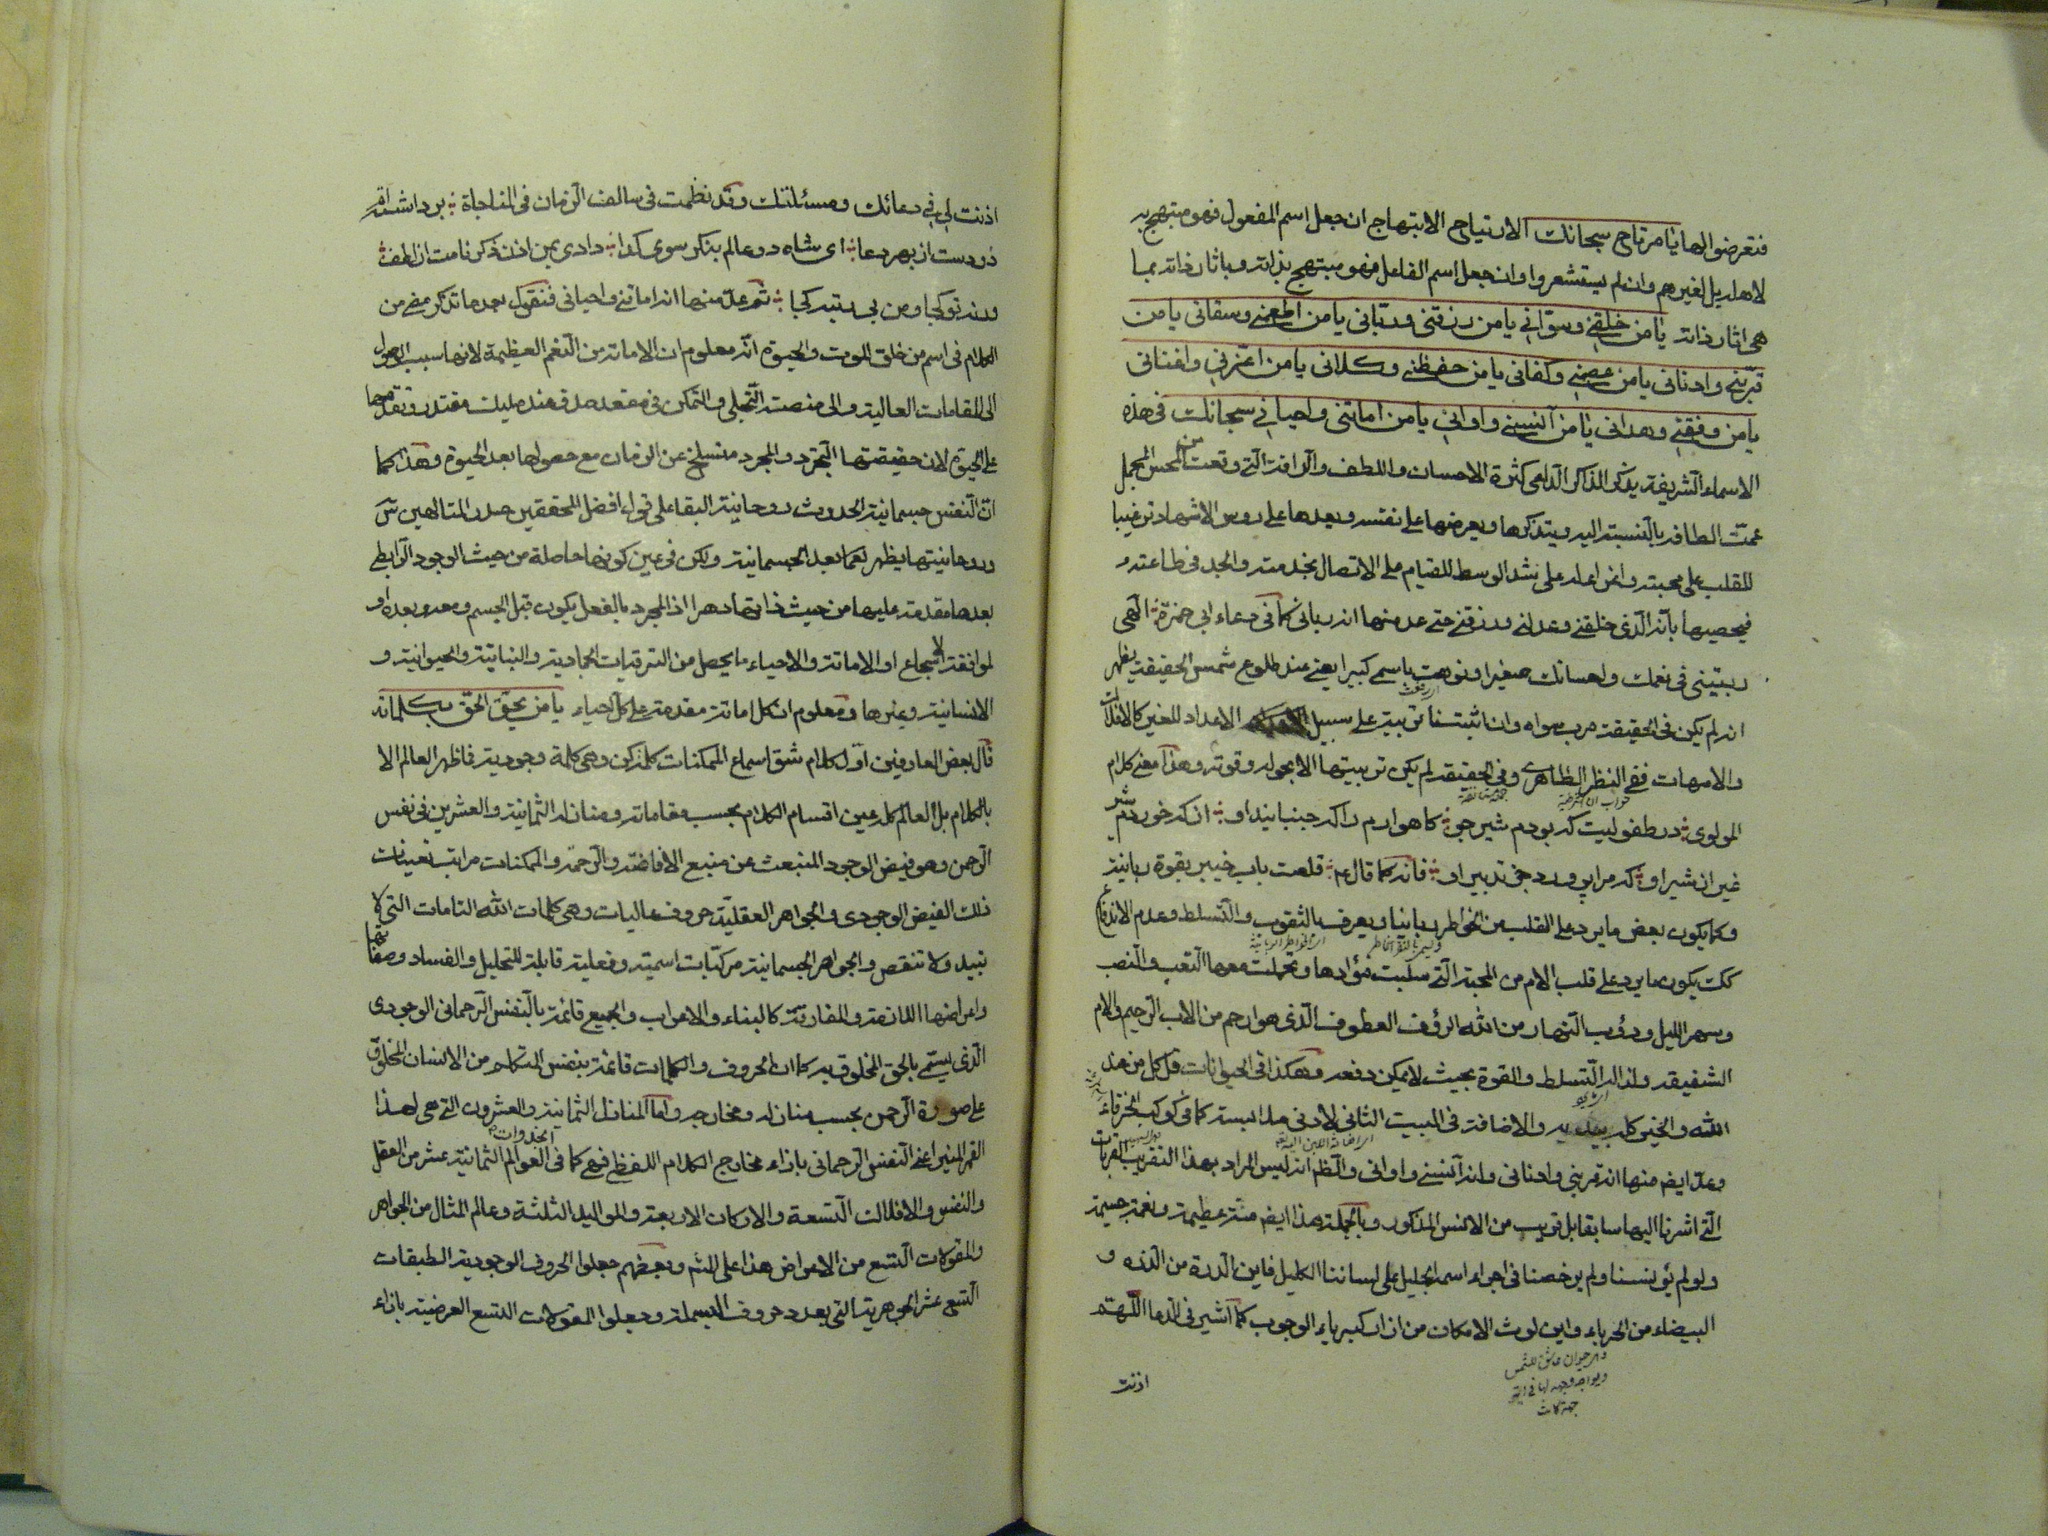 فتعرضوا لها يا مرتاح سبحانك الارتياح الابتهاج ان جعل اسم المفعول فهو مبتهج به
لاهله بل لغيرهم وان لم يستشعروا وان جعل اسم الفاعل فهو مبتهج بذاته وباثار ذاته بما
هى اثار ذاته يا من خلقنى وسوّانى يا من رزقنى وربّانى يا من اطعمنى وسقانى يا من
قرّبنى وادنانى يا من عصمنى وكفانى يا من حفظنى وكلانى يا من اعزّنى واغنانى
يا من وفقنى وهدانى يا من آنسنى واوانى يا من اماتنى واحيانى سبحانك فى هذه
الاسماء الشريفة يذكر الذاكر الداعى كثرة الاحسان واللطف والرافة التى وقعت من المحسن المجمل
عمّت الطافه بالنسبة اليه ويتذكرها ويعرضها على نفسه ويعدها على روس الاشهاد ترغيبا
للقلب على محبته واغراء له على شد الوسط للقيام على الاتصال بخدمته والجد فى طاعته و
فيحصيها بانه الذى خلقنى وعدلنى ورزقنى حتى عد منها انه ربانى كما فى دعاء ابى حمزة الهى
ربيتنى فى نعمك واحسانك صغيرا ونوهت باسمى كبيرا يعنى عند طلوع شمس الحقيقة يظهر
ان لم يكن فى الحقيقة مرب سواه وان اثبتنا تربية على سبيل الاعداد للغير كالافلاك
والامهات ففى النظر الظاهرى وفى الحقيقة لم يكن تربيتها الا بحوله وقوته وهذا معنى كلام
المولوى در طفوليت كه بودم شير جو كاهوارم را كه جنبانيد او ان كه خوردم شير
غير ان شير او كه مرا پرورد جز تدبير او فانه كما قال ع قلعت باب خيبر بقوة ربانية
وكما يكون بعض ما يرد على القلب من الخواطر ربانيا ويعرف بالثقوب والتسلط وعدم الاندفاع
كك يكون ما يرد على قلب الام من المحبة التى سلبت فؤادها وتحملت معها التعب والنصب
وسهر الليل ودؤب النهار من الله الرؤف العطوف الذى هو ارحم من الاب الرحيم والام
الشفيقة ولذا له التسلط والقوة بحيث لا يمكن دفعه وهكذا فى الحيوانات قل كل من عند
الله والخير كله بيديه والاضافة فى البيت الثانى لادنى ملابسة كما فى كوكب الخرقاء
وعدّ ايض منها انه قربنى وادنانى وانه آنسنى واوانى والظ انه ليس المراد بهذا التقريب القربات
التى اشرنا اليها سابقا بل قريب من الانس المذكور وبالجملة هذا ايض منة عظيمة ونعمة جسيمة
ولو لم يؤنسنا ولم يرخصنا فى اجراء اسمه الجليل على لساننا الكليل فاين الدرة من الذرة و
البيضاء من الحرباء واين لوث الامكان من ازار كبرياء الوجوب كما اشير فى الدعا اللهم
وهو حيوان عاشق للشمس
اذنت
اذنت لى فى دعائك ومسئلتك وقد نظمت فى سالف الزمان فى المناجاة برداشته ام
دو دست از بهر دعا اى شاه دو عالم بنكر سوى كدا دادى بمن اذن ذكر نامت از لطف
ورنه تو كجا ومن بى رتبه كجا ثم عدّ منها انه اماتنى واحيانى فنقول بعد ما تذكر معنى من
الكلام فى اسم من خلق الموت والحيوة انه معلوم ان الاماتة من النعم العظيمة لانها سبب الوصول
الى المقامات العالية والى منصة التجلى والتمكن فى مقعد صدق عند مليك مقتدر وتقدمها
على الحيوة لان حقيقتها التجرد والمجرد منسلخ عن الزمان مع حصولها بعد الحيوة وهذا كما
ان النفس جسمانية الحدوث روحانية البقا على قول افضل المحققين صدر المتالهين س
وروحانيتها يظهر لها بعد الجسمانية ولكن فى عين كونها حاصلة من حيث الوجود الرابطى
بعدها مقدمة عليها من حيث ذاتها دهرا اذ المجرد بالفعل يكون قبل الجسم ومعه وبعده او
لموافقة الاسجاع او الاماتة والاحياء ما يحصل من الترقيات الجمادية والنباتية والحيوانية و
الانسانية وغيرها ومعلوم ان كل اماتة مقدمة على كل احياء يا من يحق الحق بكلماته
قال بعض العارفين اول كلام شق اسماع الممكنات كلمة كن وهى كلمة وجودية فاظهر العالم الا
بالكلام بل العالم كله عين اقسام الكلام بحسب مقاماته ومنازله الثمانية والعشرين فى نفس
الرحمن وهو فيض الوجود المنبعث عن منبع الافاضة والرحمة والممكنات مراتب تعينات
ذلك الفيض الوجودى والجواهر العقلية حروف عاليات وهى كلمات الله التامات التى لا
تبيد ولا تنقص والجواهر الجسمانية مركبات اسمية وفعلية قابلة للتحليل والفساد وصفاتها
واعراضها اللازمة والمفارقة كالبناء والاعراب والجميع قائمة بالنفس الرحمانى الوجودى
الذى يسمى بالحق المخلوق به كما ان الحروف والكلمات قائمة بنفس المتكلم من الانسان المخلوق
على صورة الرحمن بحسب منازله ومخارجه واما المنازل الثمانية والعشرون التى هى لهذا
القمر المنير اعنى النفس الرحمانى بازاء مخارج الكلام اللفظى فهى كما فى العوالم الثمانية عشر من العقل
والنفس والافلاك التسعة والاركان الاربعة والمواليد الثلثة وعالم المثال من الجواهر
والمقولات التسع من الاعراض هذا على المشهور وبعضهم جعلوا الحروف الوجودية الطبقات
التسع عشر الجوهرية التى بعدد حروف البسملة وجعلوا المقولات التسع العرضية بازاء